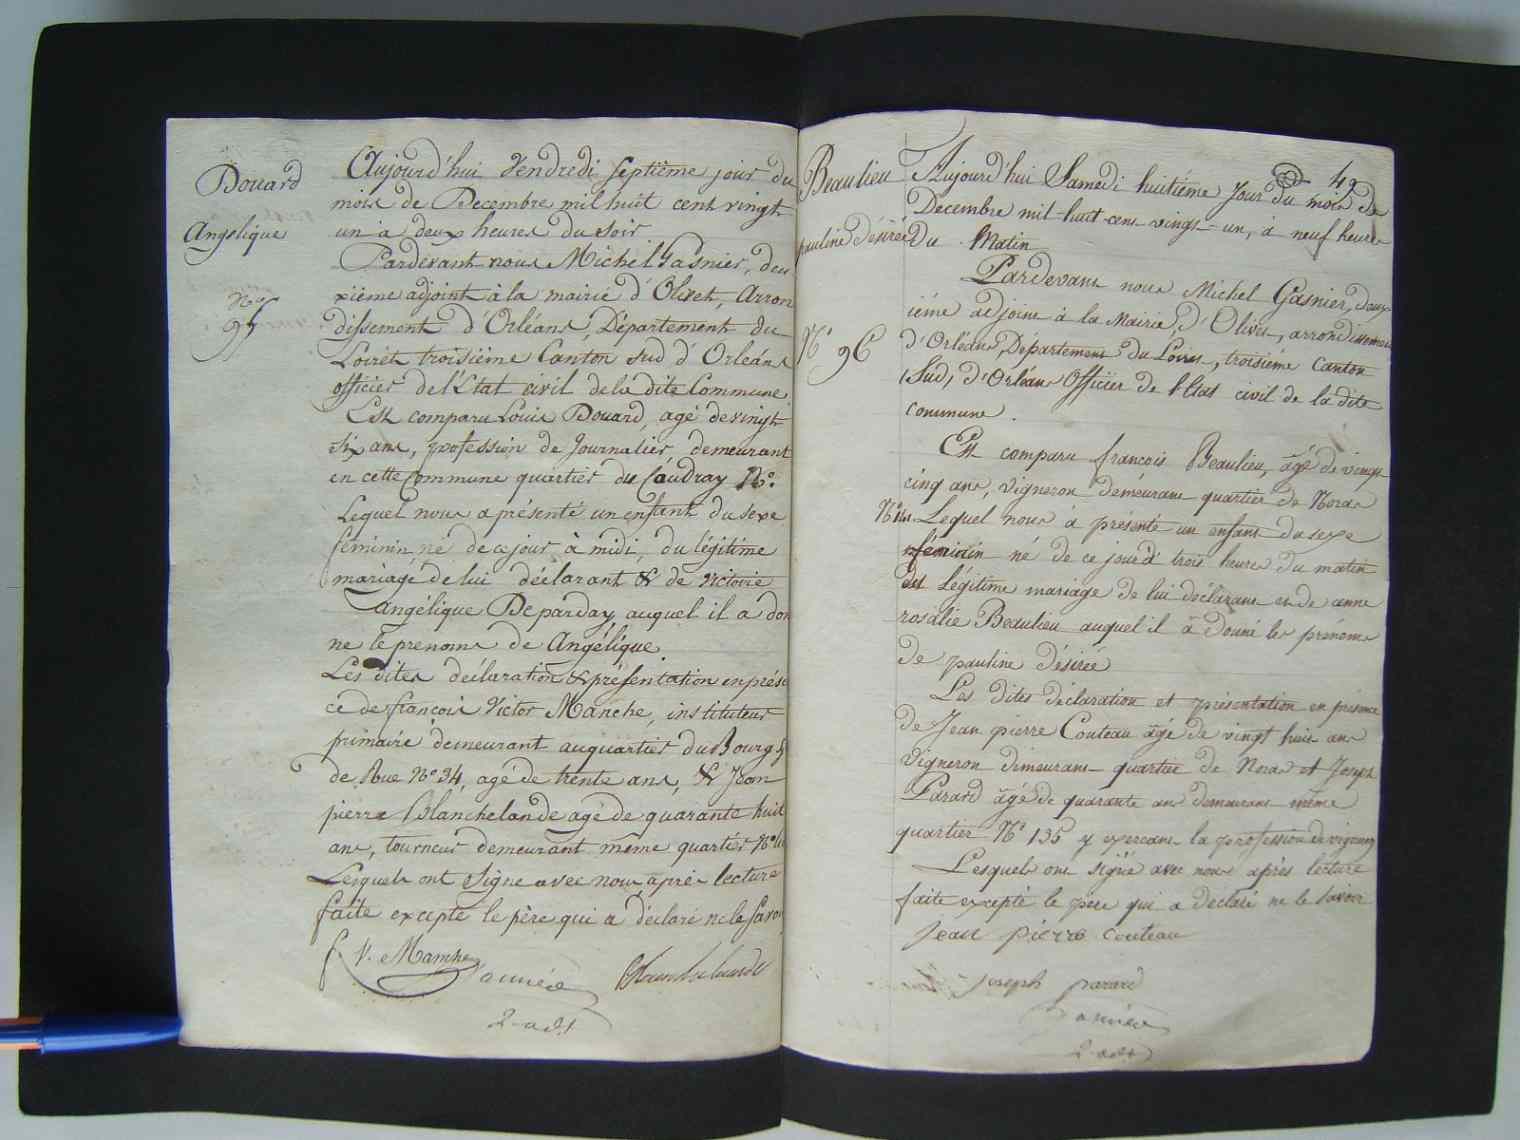 Douard
Angélique
No
95
Aujourd'hui Vendredi Septième jour du
mois de Decembre mil huit cent vingt
un à deux heures du Soir
Pardevant nous Michel Gasnier, deu
xième adjoint à la mairie d'Olivet, Arron
dissement d'Orléans, Département du
Loiret troisième Canton Sud d'Orléans
officier de l'Etat civil de la dite Commune
Est comparu Louis Douard, agé de vingt
six ans, profession de Journalier, demeurant
en cette Commune quartier du Caudray No.
Lequel nous a présenté un enfant du Sexe
féminin né de ce jour à midi, du légitime
mariage de lui déclarant & de Victoire
Angélique Deparday auquel il a don
né le prenoms de Angélique
Les dites déclaration & présentation en présen
ce de françois Victor Manche, instituteur
primaire demeurant au quartier du Bourg g
de Rue No 34, agé de trente ans, & Jean
pierre Blanchelande agé de quarante huit
ans, tourneur demeurant même quartier No
Lesquels ont Signé avec nous après lecture
faite excepté le père qui a déclaré ne le Savoir
f. V. Manche
Gasnier
Blanchelande
2e adt
49
Beaulieu
pauline Désirée
No 96
Aujourd'hui Samedi huitième Jour du mois de
Decembre mil-huit-cent-vingt-un, à neuf heures
du Matin
Pardevant nous Michel Gasnier, deux
ième adjoint à la Mairie, d'Olivet, arrondissement
d'Orléans, Département du Loiret, troisième Canton
(Sud) d'Orléans Officier de l'Etat civil de la dite
commune.
Est comparu françois Beaulieu, âgé de vingt
cinq ans, vigneron demeurant quartier de Noras
No Lequel nous à présenté un enfant du sexe
féminin né de ce jour à trois heures du matin
du Légitime mariage de lui déclarant et de anne
rosalie Beaulieu auquel il à donné les prénoms
de pauline désirée
Les dites déclaration et présentation en présence
de Jean pierre Couteau âgé de vingt huit ans
Vigneron demeurant quartier de Noras et Joseph
Parard âgé de quarante ans demeurant même
quartier No 135 y exercant la profession de vigneron
Lesquels ont signé avec nous après lecture
faite excepté le père qui a déclaré ne le savoir
jean pierre couteau
joseph parard
Gasnier
2e adt